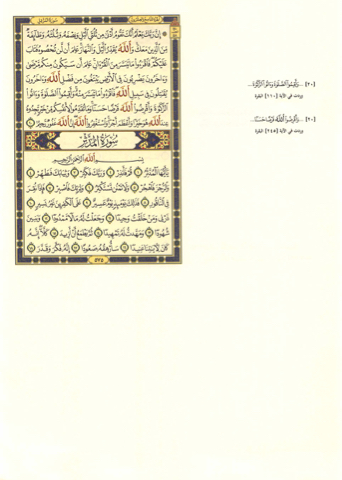 إِنَّ رَبَّكَ يَعْلَمُ أَنَّكَ تَقُومُ أَدْنَىٰ مِن ثُلُثَيِ ٱلَّيْلِ وَنِصْفَهُۥ وَثُلُثَهُۥ وَطَآئِفَةٌ
مِّنَ ٱلَّذِينَ مَعَكَ وَٱللَّهُ يُقَدِّرُ ٱلَّيْلَ وَٱلنَّهَارَ عَلِمَ أَن لَّن تُحْصُوهُ فَتَابَ
عَلَيْكُمْ فَٱقْرَءُوا۟ مَا تَيَسَّرَ مِنَ ٱلْقُرْءَانِ عَلِمَ أَن سَيَكُونُ مِنكُم مَّرْضَىٰ
وَءَاخَرُونَ يَضْرِبُونَ فِى ٱلْأَرْضِ يَبْتَغُونَ مِن فَضْلِ ٱللَّهِ وَءَاخَرُونَ
يُقَٰتِلُونَ فِى سَبِيلِ ٱللَّهِ فَٱقْرَءُوا۟ مَا تَيَسَّرَ مِنْهُ وَأَقِيمُوا۟ ٱلصَّلَوٰةَ وَءَاتُوا۟
ٱلزَّكَوٰةَ وَأَقْرِضُوا۟ ٱللَّهَ قَرْضًا حَسَنًا وَمَا تُقَدِّمُوا۟ لِأَنفُسِكُم مِّنْ خَيْرٍ تَجِدُوهُ
عِندَ ٱللَّهِ هُوَ خَيْرًا وَأَعْظَمَ أَجْرًا وَٱسْتَغْفِرُوا۟ ٱللَّهَ إِنَّ ٱللَّهَ غَفُورٌ رَّحِيمٌ ٢٠
سُورَةُ المُدَّثِّرِ
بِسْمِ ٱللَّهِ ٱلرَّحْمَٰنِ ٱلرَّحِيمِ
يَٰٓأَيُّهَا ٱلْمُدَّثِّرُ ١ قُمْ فَأَنذِرْ ٢ وَرَبَّكَ فَكَبِّرْ ٣ وَثِيَابَكَ فَطَهِّرْ ٤
وَٱلرُّجْزَ فَٱهْجُرْ ٥ وَلَا تَمْنُن تَسْتَكْثِرُ ٦ وَلِرَبِّكَ فَٱصْبِرْ ٧ فَإِذَا نُقِرَ
فِى ٱلنَّاقُورِ ٨ فَذَٰلِكَ يَوْمَئِذٍ يَوْمٌ عَسِيرٌ ٩ عَلَى ٱلْكَٰفِرِينَ غَيْرُ يَسِيرٍ ١٠
ذَرْنِى وَمَنْ خَلَقْتُ وَحِيدًا ١١ وَجَعَلْتُ لَهُۥ مَالًا مَّمْدُودًا ١٢ وَبَنِينَ
شُهُودًا ١٣ وَمَهَّدتُّ لَهُۥ تَمْهِيدًا ١٤ ثُمَّ يَطْمَعُ أَنْ أَزِيدَ ١٥ كَلَّآ إِنَّهُۥ
كَانَ لِءَايَٰتِنَا عَنِيدًا ١٦ سَأُرْهِقُهُۥ صَعُودًا ١٧ إِنَّهُۥ فَكَّرَ وَقَدَّرَ ١٨
٥٧٥
[٢٠] ... وَأَقِيمُوا۟ ٱلصَّلَوٰةَ وَءَاتُوا۟ ٱلزَّكَوٰةَ...
وردت في الآية [١١٠] البقرة
[٢٠] ... وَأَقْرِضُوا۟ ٱللَّهَ قَرْضًا حَسَنًا...
وردت في الآية [٢٤٥] البقرة